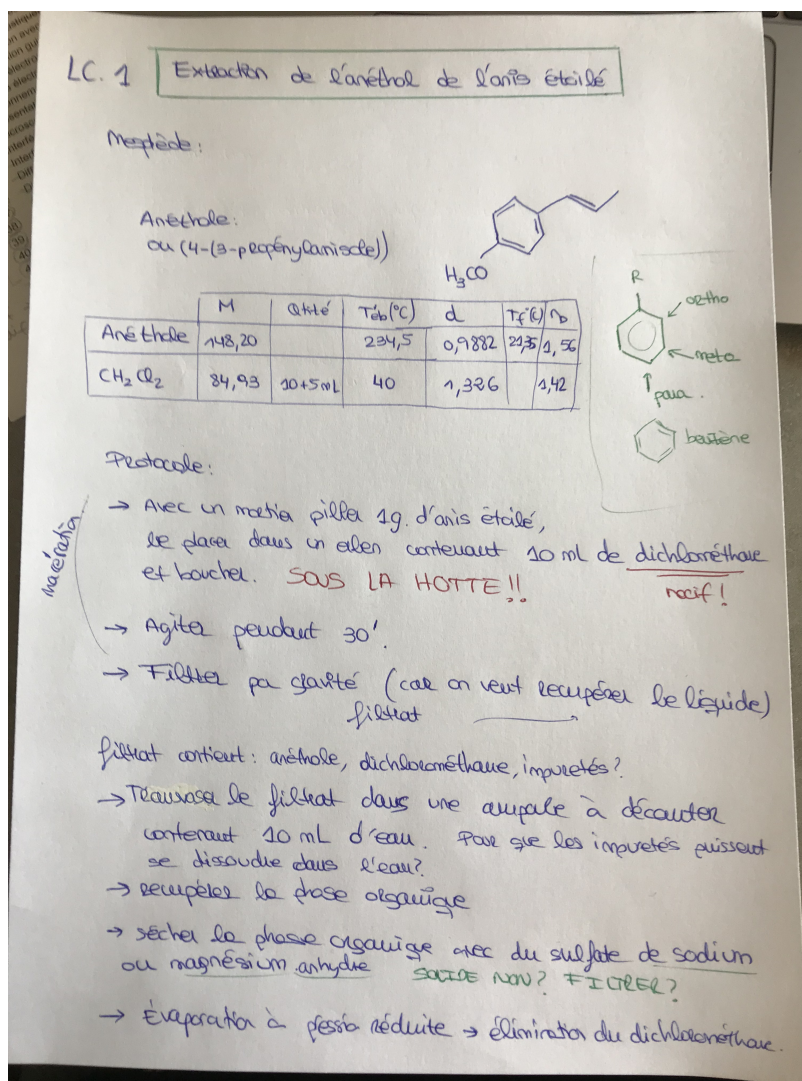 LC. 1 Extraction de l'anéthol de l'anis étoilé
Anéthole:
ou (4-(3-propénylanisole))
H₃CO
R
ortho
meta
para.
benzène
M Qtité Téb(°C) d Tf(°C) n
Anéthole 148,20 234,5 0,9882 21,35 1,56
CH₂Cl₂ 84,93 10+5mL 40 1,326 1,42
Protocole:
macération
→ Avec un mortier piller 1g. d'anis étoilé,
le placer dans un erlen contenant 10 ml de dichlorométhane
et boucher. SOUS LA HOTTE!! nocif!
→ Agiter pendant 30'.
→ Filtrer par gravité (car on veut recupérer le liquide)
filtrat
filtrat contient: anéthole, dichlorométhane, impuretés?
→ Transvaser le filtrat dans une ampoule à décanter
contenant 10 mL d'eau. Pour que les impuretés puissent
se dissoudre dans l'eau?
→ recupérer la phase organique
→ sécher la phase organique avec du sulfate de sodium
ou magnésium anhydre SOLIDE NON? FILTRER?
→ Évaporation à pression réduite → élimination du dichlorométhane.